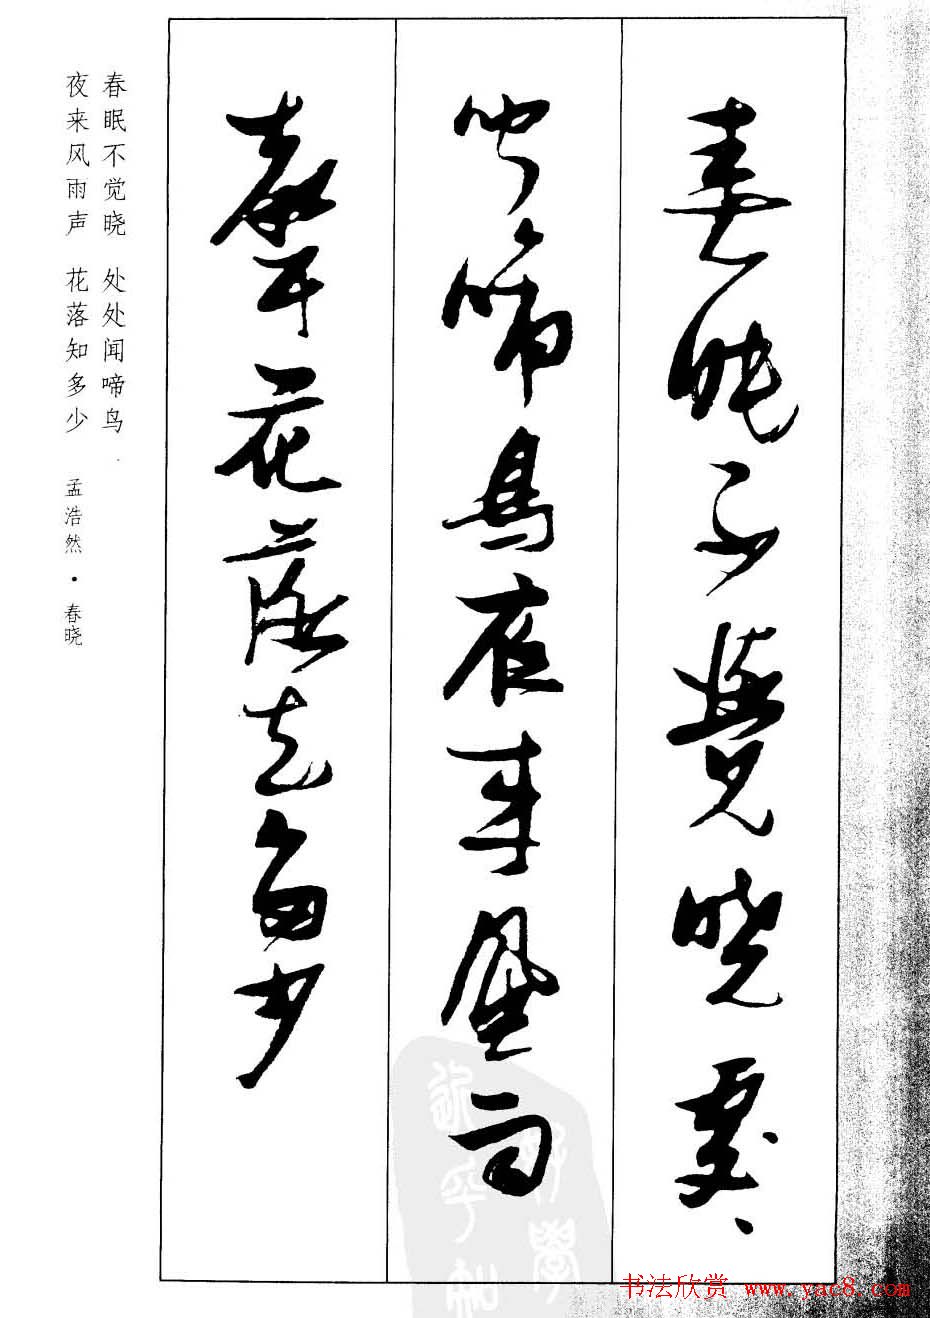 春眠不覺曉處〻
聞啼鳥夜来風雨
聲花落知多少
春眠不觉晓 处处闻啼鸟
夜来风雨声 花落知多少
孟浩然·春晓
书法欣赏 www.yac8.com